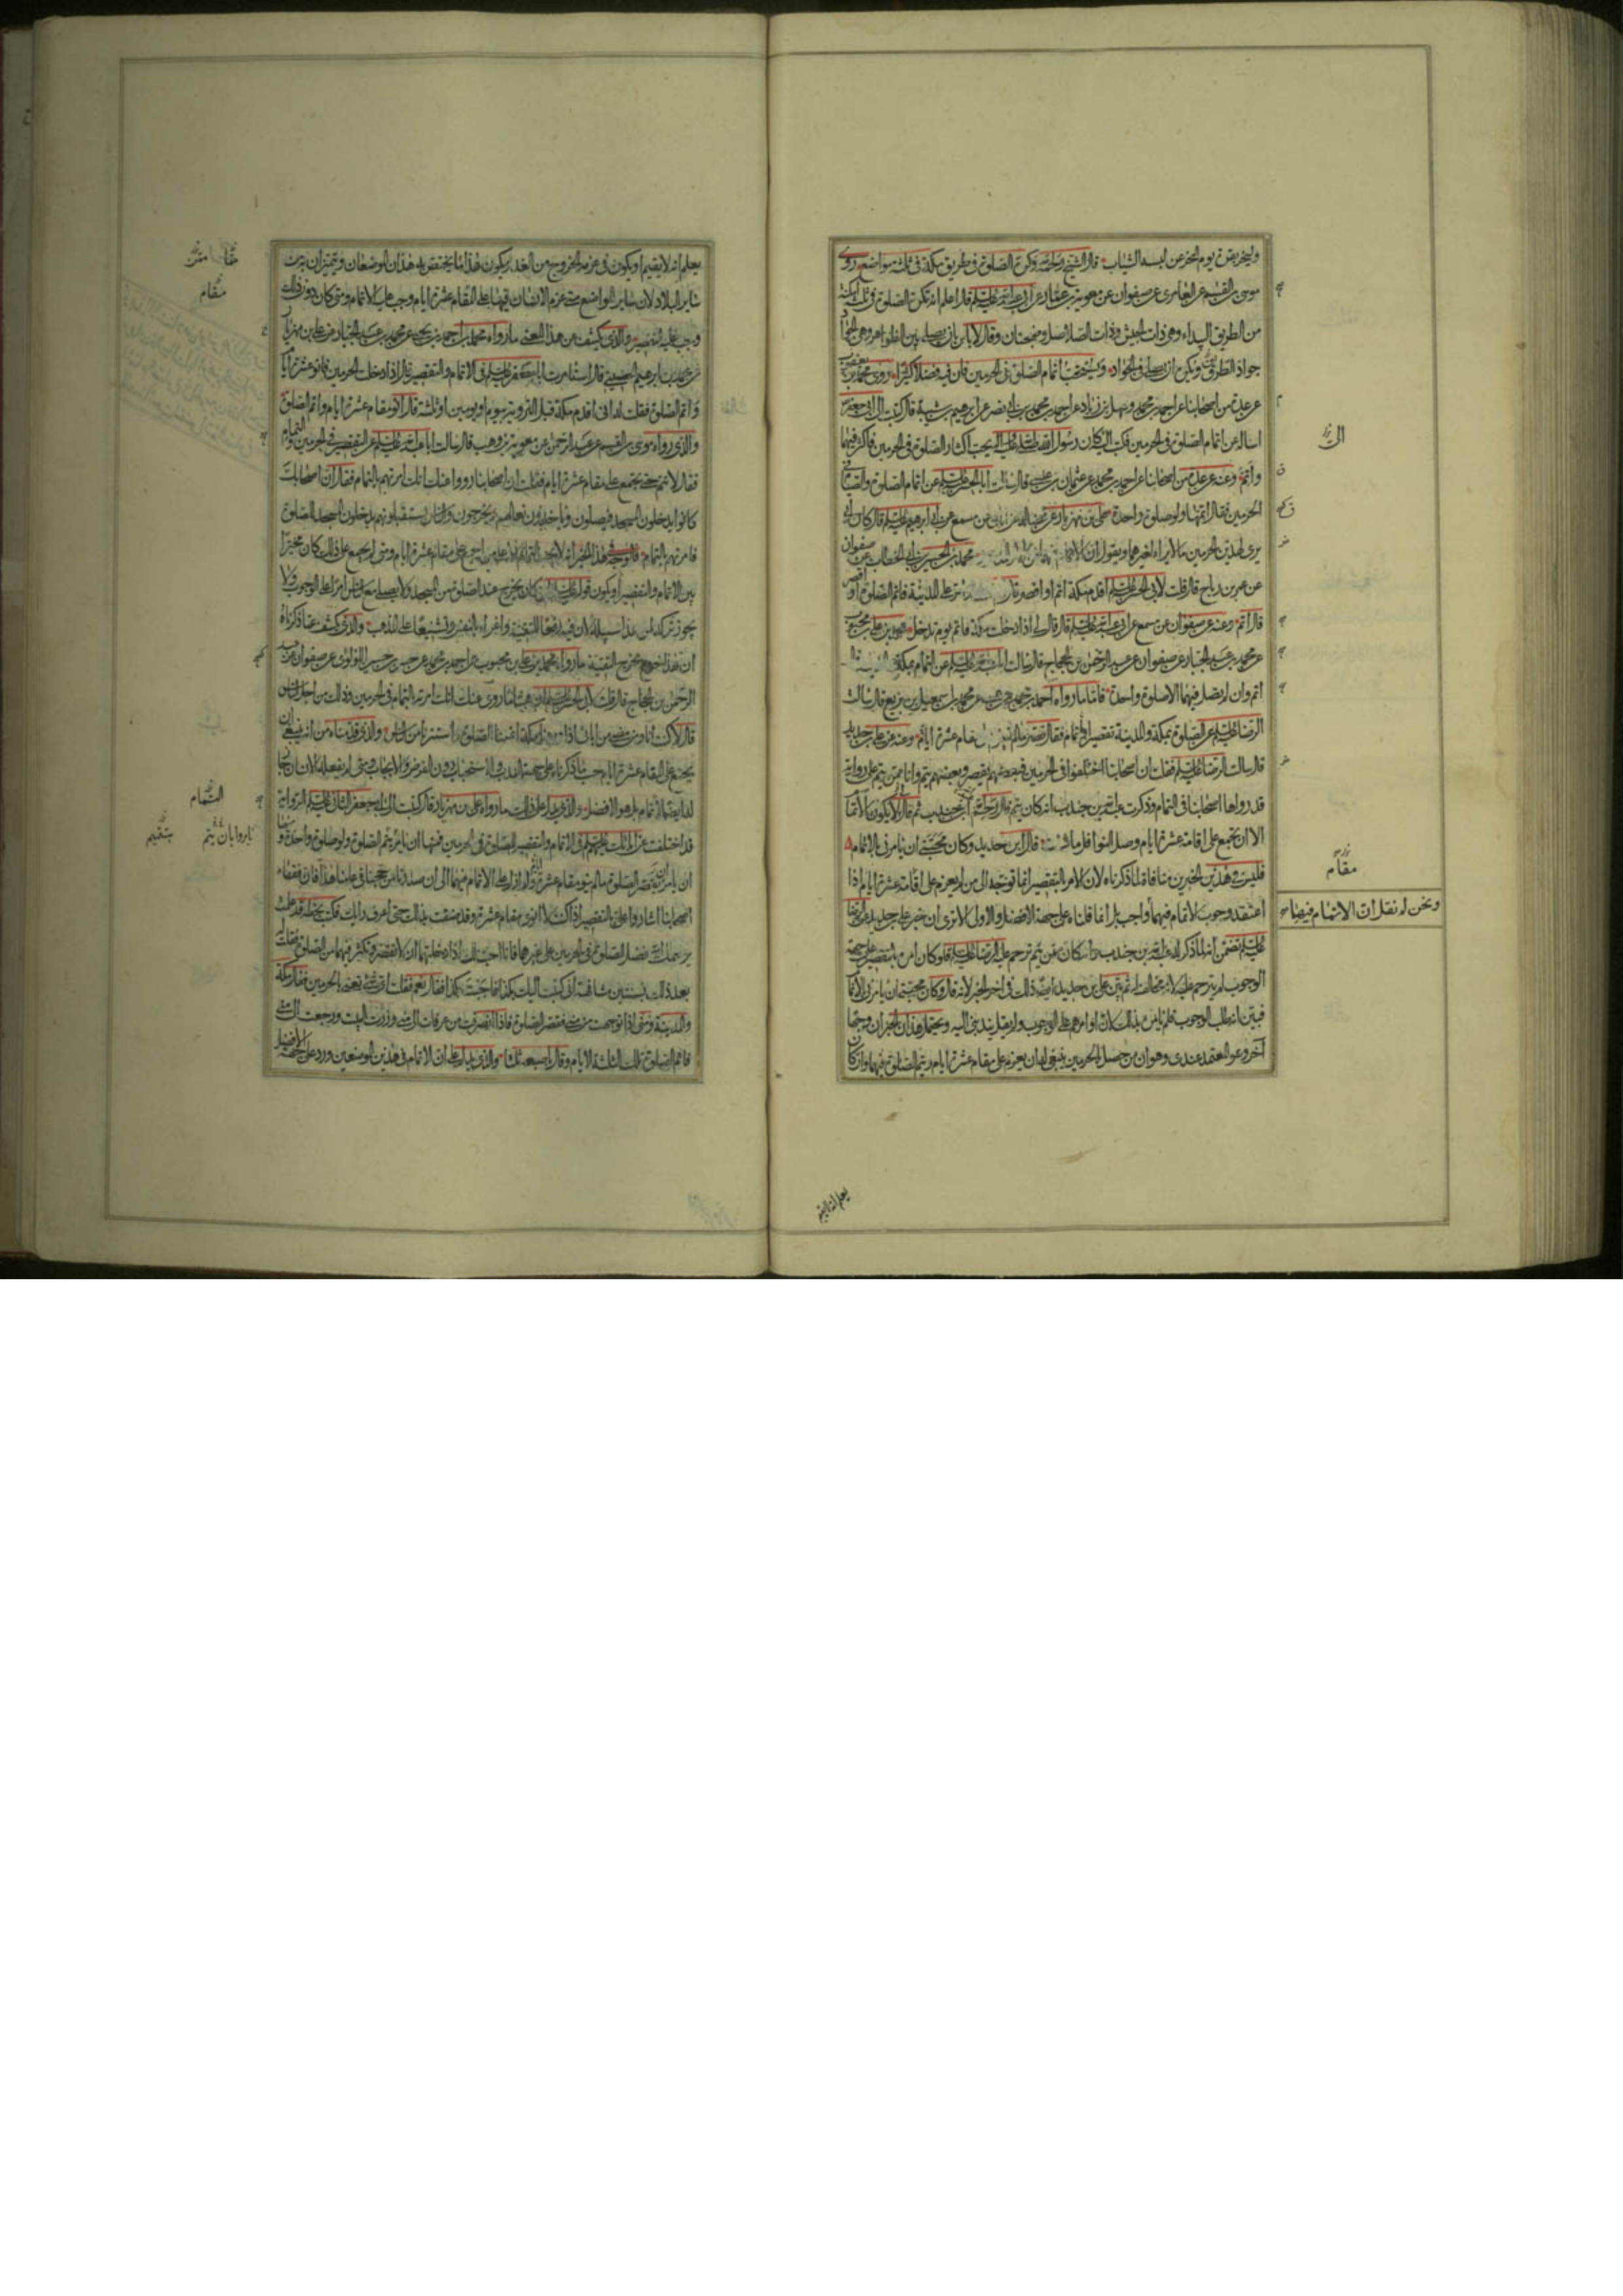 وليخر بقرة يوم النحر عن لبسه الثياب قال الشيخ رحمه الله وتكره الصلوة في طريق مكة في ثلثة مواضع روى
موسى بن القسم عن العامرى عن صفوان عن معوية بن عمار عن ابى عبد الله عليه السلم قال اعلم انه تكره الصلوة في ثلثة امكنة
من الطريق البيداء وهي ذات الجيش وذات الصلاصل وضجنان وقال لا باس بان يصلى بين الظواهر وهي الجواد
جواد الطرق ويكره ان يصلى في الجواد ويستحب اتمام الصلوة في الحرمين فان فيه فضلا كثيرا روى محمد بن يعقوب
عن عدة من اصحابنا عن احمد بن محمد وسهل بن زياد عن احمد بن محمد بن ابى نصر عن ابرهيم بن شيبة قال كتبت الى ابى جعفر
اساله عن اتمام الصلوة في الحرمين فكتب الى كان رسول الله صلى الله عليه وآله يحب اكثار الصلوة في الحرمين فاكثر فيهما
واتم وعنه عن عدة من اصحابنا عن احمد بن محمد عن عثمان بن عيسى قال سالت ابا الحسن عليه السلم عن اتمام الصلوة والصيام في
الحرمين فقال اتمها ولو صلوة واحدة على بن مهزيار عن فضالة عن ابان عن مسمع عن ابى ابرهيم عليه السلم قال كان ابى
يرى لهذين الحرمين ما لا يراه لغيرهما ويقول ان الاتمام محمد بن الحسين بن ابى الخطاب عن صفوان
عن عمر بن رباح قال قلت لابى الحسن عليه السلم اقدم مكة اتم او اقصر قال على المدينة فاتم الصلوة او اقصر
قال اتم وعنه عن صفوان عن مسمع عن ابى عبد الله عليه السلم قال قال لى اذا دخلت مكة فاتم يوم تدخل محمد بن على بن محبوب
عن محمد بن عبد الجبار عن صفوان عن عبد الرحمن بن الحجاج قال سالت ابا عبد الله عليه السلم عن التمام بمكة والمدينة قال
اتم وان لم تصل فيهما الا صلوة واحدة فاما ما رواه احمد بن محمد بن عيسى عن محمد بن اسمعيل بن بزيع قال سالت
الرضا عليه السلم عن الصلوة بمكة والمدينة تقصير او اتمام فقال قصر ما لم تعزم على مقام عشرة ايام وعنه عن على بن حديد
قال سالت الرضا عليه السلم فقلت ان اصحابنا اختلفوا في الحرمين فبعضهم يقصر وبعضهم يتم وانا ممن يتم على رواية
قد رواها اصحابنا في التمام وذكرت عبد الله بن جندب انه كان يتم قال رحم الله ابن جندب ثم قال لى لا يكون الاتمام
الا ان تجمع على اقامة عشرة ايام وصل النوافل ما شئت قال ابن حديد وكان محبتى ان يامرنى بالاتمام
فليس في هذين الخبرين منافاة لما ذكرناه لان الامر بالتقصير انما توجه الى من لم يعزم على اقامة عشرة ايام اذا
اعتقد وجوب الاتمام فيهما واجب بل انما قلناه على جهة الافضل والاولى الا ترى ان خبر على بن حديد عن الرضا
عليه السلم تضمن انه لما ذكر له عبد الله بن جندب وانه كان ممن يتم ترحم عليه الرضا عليه السلم فلو كان امره بالتقصير على جهة
الوجوب لم يترحم عليه لانه مخالف له ثم بين على بن حديد ايضا ذلك في اخر الخبر لانه قال وكان محبتى ان يامرنى بالاتمام
فبين انه طلب الوجوب فلم يامره بذلك لان اوامرهم على الوجوب ويحتمل هذان الخبران وجها
آخر وهو المعتمد عندى وهو ان من حصل بالحرمين ينبغى له ان يعزم على مقام عشرة ايام ويتم الصلوة فيهما وان كان
الى
مقام
ونحن لم نقل ان الاتمام فيهما
يعلم انه لا يقيم
يعلم انه لا يقيم او يكون في عزمه الخروج من الغد ويكون هذا مما يختص به هذان الموضعان ويتميزان به من
ساير البلاد لان ساير المواضع متى عزم الانسان فيها على المقام عشرة ايام وجب عليه الاتمام ومتى كان دون ذلك
وجب عليه التقصير والذى يكشف عن هذا المعنى ما رواه محمد بن احمد بن يحيى عن محمد بن عبد الجبار عن على بن مهزيار
عن محمد بن ابرهيم الحضينى قال استامرت ابا جعفر عليه السلم في الاتمام والتقصير قال اذا دخلت الحرمين فانو عشرة ايام
واتم الصلوة فقلت له انى اقدم مكة قبل التروية بيوم او يومين او ثلثة قال انو مقام عشرة ايام واتم الصلوة
والذى رواه موسى بن القسم عن عبد الرحمن عن معوية بن وهب قال سالت ابا عبد الله عليه السلم عن التقصير في الحرمين والتمام
فقال لا تتم حتى تجمع على مقام عشرة ايام فقلت ان اصحابنا رووا عنك انك امرتهم بالتمام فقال ان اصحابك
كانوا يدخلون المسجد فيصلون وياخذون نعالهم ويخرجون والناس يستقبلونهم يدخلون المسجد للصلوة
فامرتهم بالتمام فالوجه في هذا الخبر انه لا يجب التمام الا على من اجمع على مقام عشرة ايام ومتى لم يجمع على ذلك كان مخيرا
بين الاتمام والتقصير او يكون قوله عليه السلم لمن كان يخرج عند الصلوة من المسجد ولا يصلى مع الناس امرا على الوجوب ولا
يجوز تركه لمن هذا سبيله لان فيه رفعا للتقية واغراء بالنفس وتشنيعا على المذهب والذى يكشف عما ذكرناه
ان هذا الخبر خرج مخرج التقية ما رواه محمد بن على بن محبوب عن احمد بن محمد عن حسن بن حسين اللؤلؤى عن صفوان عن عبد
الرحمن بن الحجاج قال قلت لابى الحسن عليه السلم ان هشاما روى عنك انك امرته بالتمام في الحرمين وذلك من اجل الناس
قال لا كنت انا ومن مضى من ابائى اذا وردنا مكة اتممنا الصلوة واستترنا من الناس والذى قدمناه من انه ينبغى ان
يجمع على المقام عشرة ايام حسب ما ذكرناه على جهة الندب والاستحباب دون الفرض والايجاب ومتى لم يفعله الانسان جاز
له ايضا الاتمام بل هو الافضل والذى يدل على ذلك ما رواه على بن مهزيار قال كتبت الى ابى جعفر الثانى عليه السلم الرواية
قد اختلفت عن ابائك عليهم السلم في الاتمام والتقصير للصلوة في الحرمين فمنها ان يامر بتتم الصلوة ولو صلوة واحدة ومنها
ان يامر بقصر الصلوة ما لم ينو مقام عشرة ايام ولم ازل على الاتمام فيهما الى ان صدرنا من حجنا في عامنا هذا فان فقهاء
اصحابنا اشاروا على بالتقصير اذا كنت لا انوى مقام عشرة وقد ضقت بذلك حتى اعرف رايك فكتب بخطه قد علمت
يرحمك الله فضل الصلوة في الحرمين على غيرهما فانا احب لك اذا دخلتهما ان لا تقصر وتكثر فيهما من الصلوة فقلت له
بعد ذلك بسنتين مشافهة انى كتبت اليك بكذا فاجبت بكذا فقال نعم فقلت اى شئ تعنى بالحرمين فقال مكة
والمدينة ومتى اذا توجهت من منى فقصر الصلوة فاذا انصرفت من عرفات الى منى وزرت البيت ورجعت الى منى
فاتم الصلوة تلك الثلثة الايام وقال باصبعه ثلثا والذى يدل على ان الاتمام في هذين الموضعين ورد على جهة الافضل
مقام
التمام
بتتميم